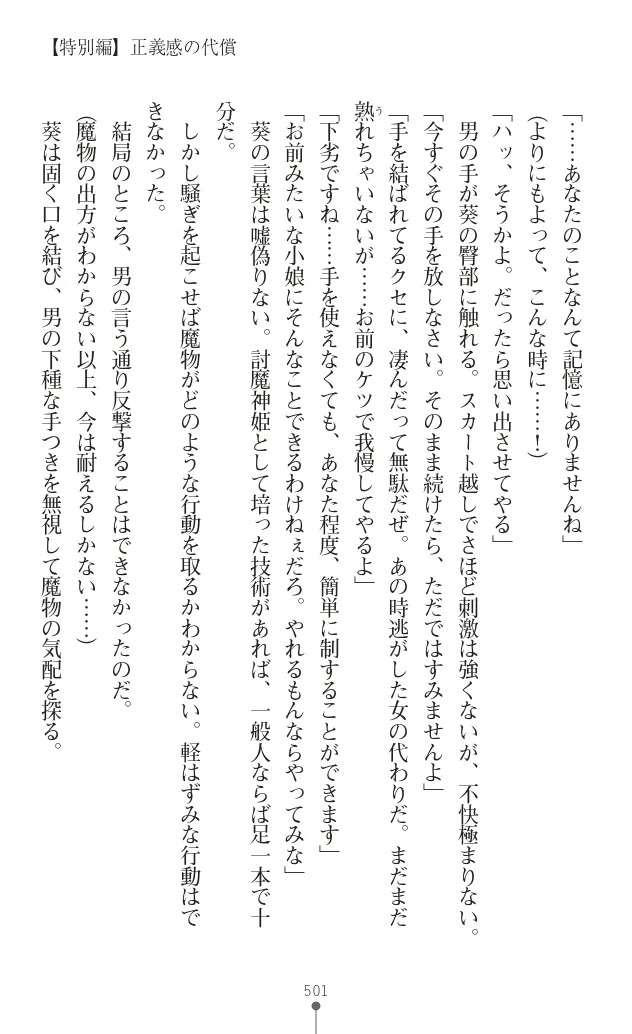 【特別編】正義感の代償
「……あなたのことなんて記憶にありませんね」
（よりにもよって、こんな時に……！）
「ハッ、そうかよ。だったら思い出させてやる」
男の手が葵の臀部に触れる。スカート越しでさほど刺激は強くないが、不快極まりない。
「今すぐその手を放しなさい。そのまま続けたら、ただではすみませんよ」
「手を結ばれてるクセに、凄んだって無駄だぜ。あの時逃がした女の代わりだ。まだまだ
熟れちゃいないが……お前のケツで我慢してやるよ」
「下劣ですね……手を使えなくても、あなた程度、簡単に制することができます」
「お前みたいな小娘にそんなことできるわけねぇだろ。やれるもんならやってみな」
葵の言葉は嘘偽りない。討魔神姫として培った技術があれば、一般人ならば足一本で十
分だ。
しかし騒ぎを起こせば魔物がどのような行動を取るかわからない。軽はずみな行動はで
きなかった。
結局のところ、男の言う通り反撃することはできなかったのだ。
（魔物の出方がわからない以上、今は耐えるしかない……）
葵は固く口を結び、男の下種な手つきを無視して魔物の気配を探る。
501